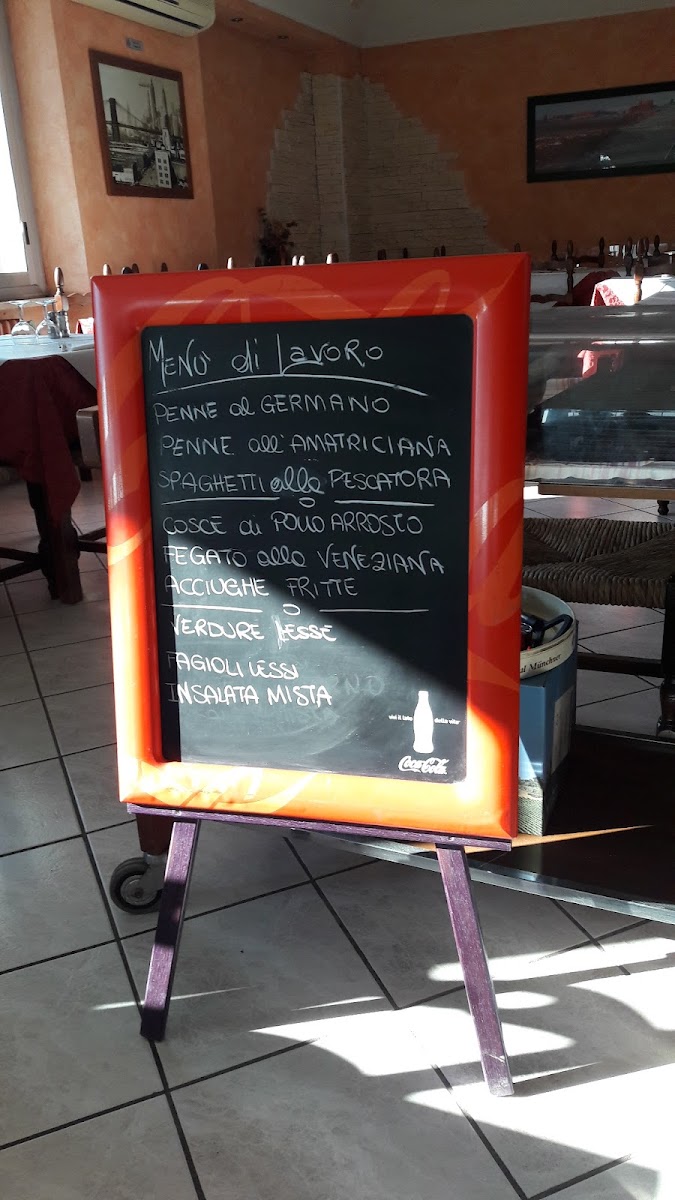 MENÙ di LAVORO
PENNE al GERMANO
PENNE all'AMATRICIANA
SPAGHETTI alla PESCATORA
COSCE di POLLO ARROSTO
FEGATO alla VENEZIANA
ACCIUGHE FRITTE
VERDURE LESSE
FAGIOLI LESSI
INSALATA MISTA
vivi il lato della vita
Coca-Cola
al Münchner